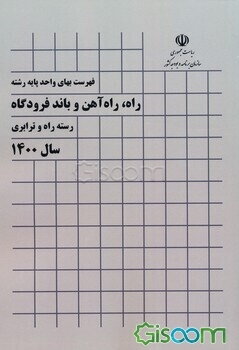 ریاست جمهوری
سازمان برنامه و بودجه کشور
فهرست بهای واحد پایه رشته
راه، راه‌آهن و باند فرودگاه
رسته راه و ترابری
سال ۱۴۰۰
Gisoom
Gisoom.com